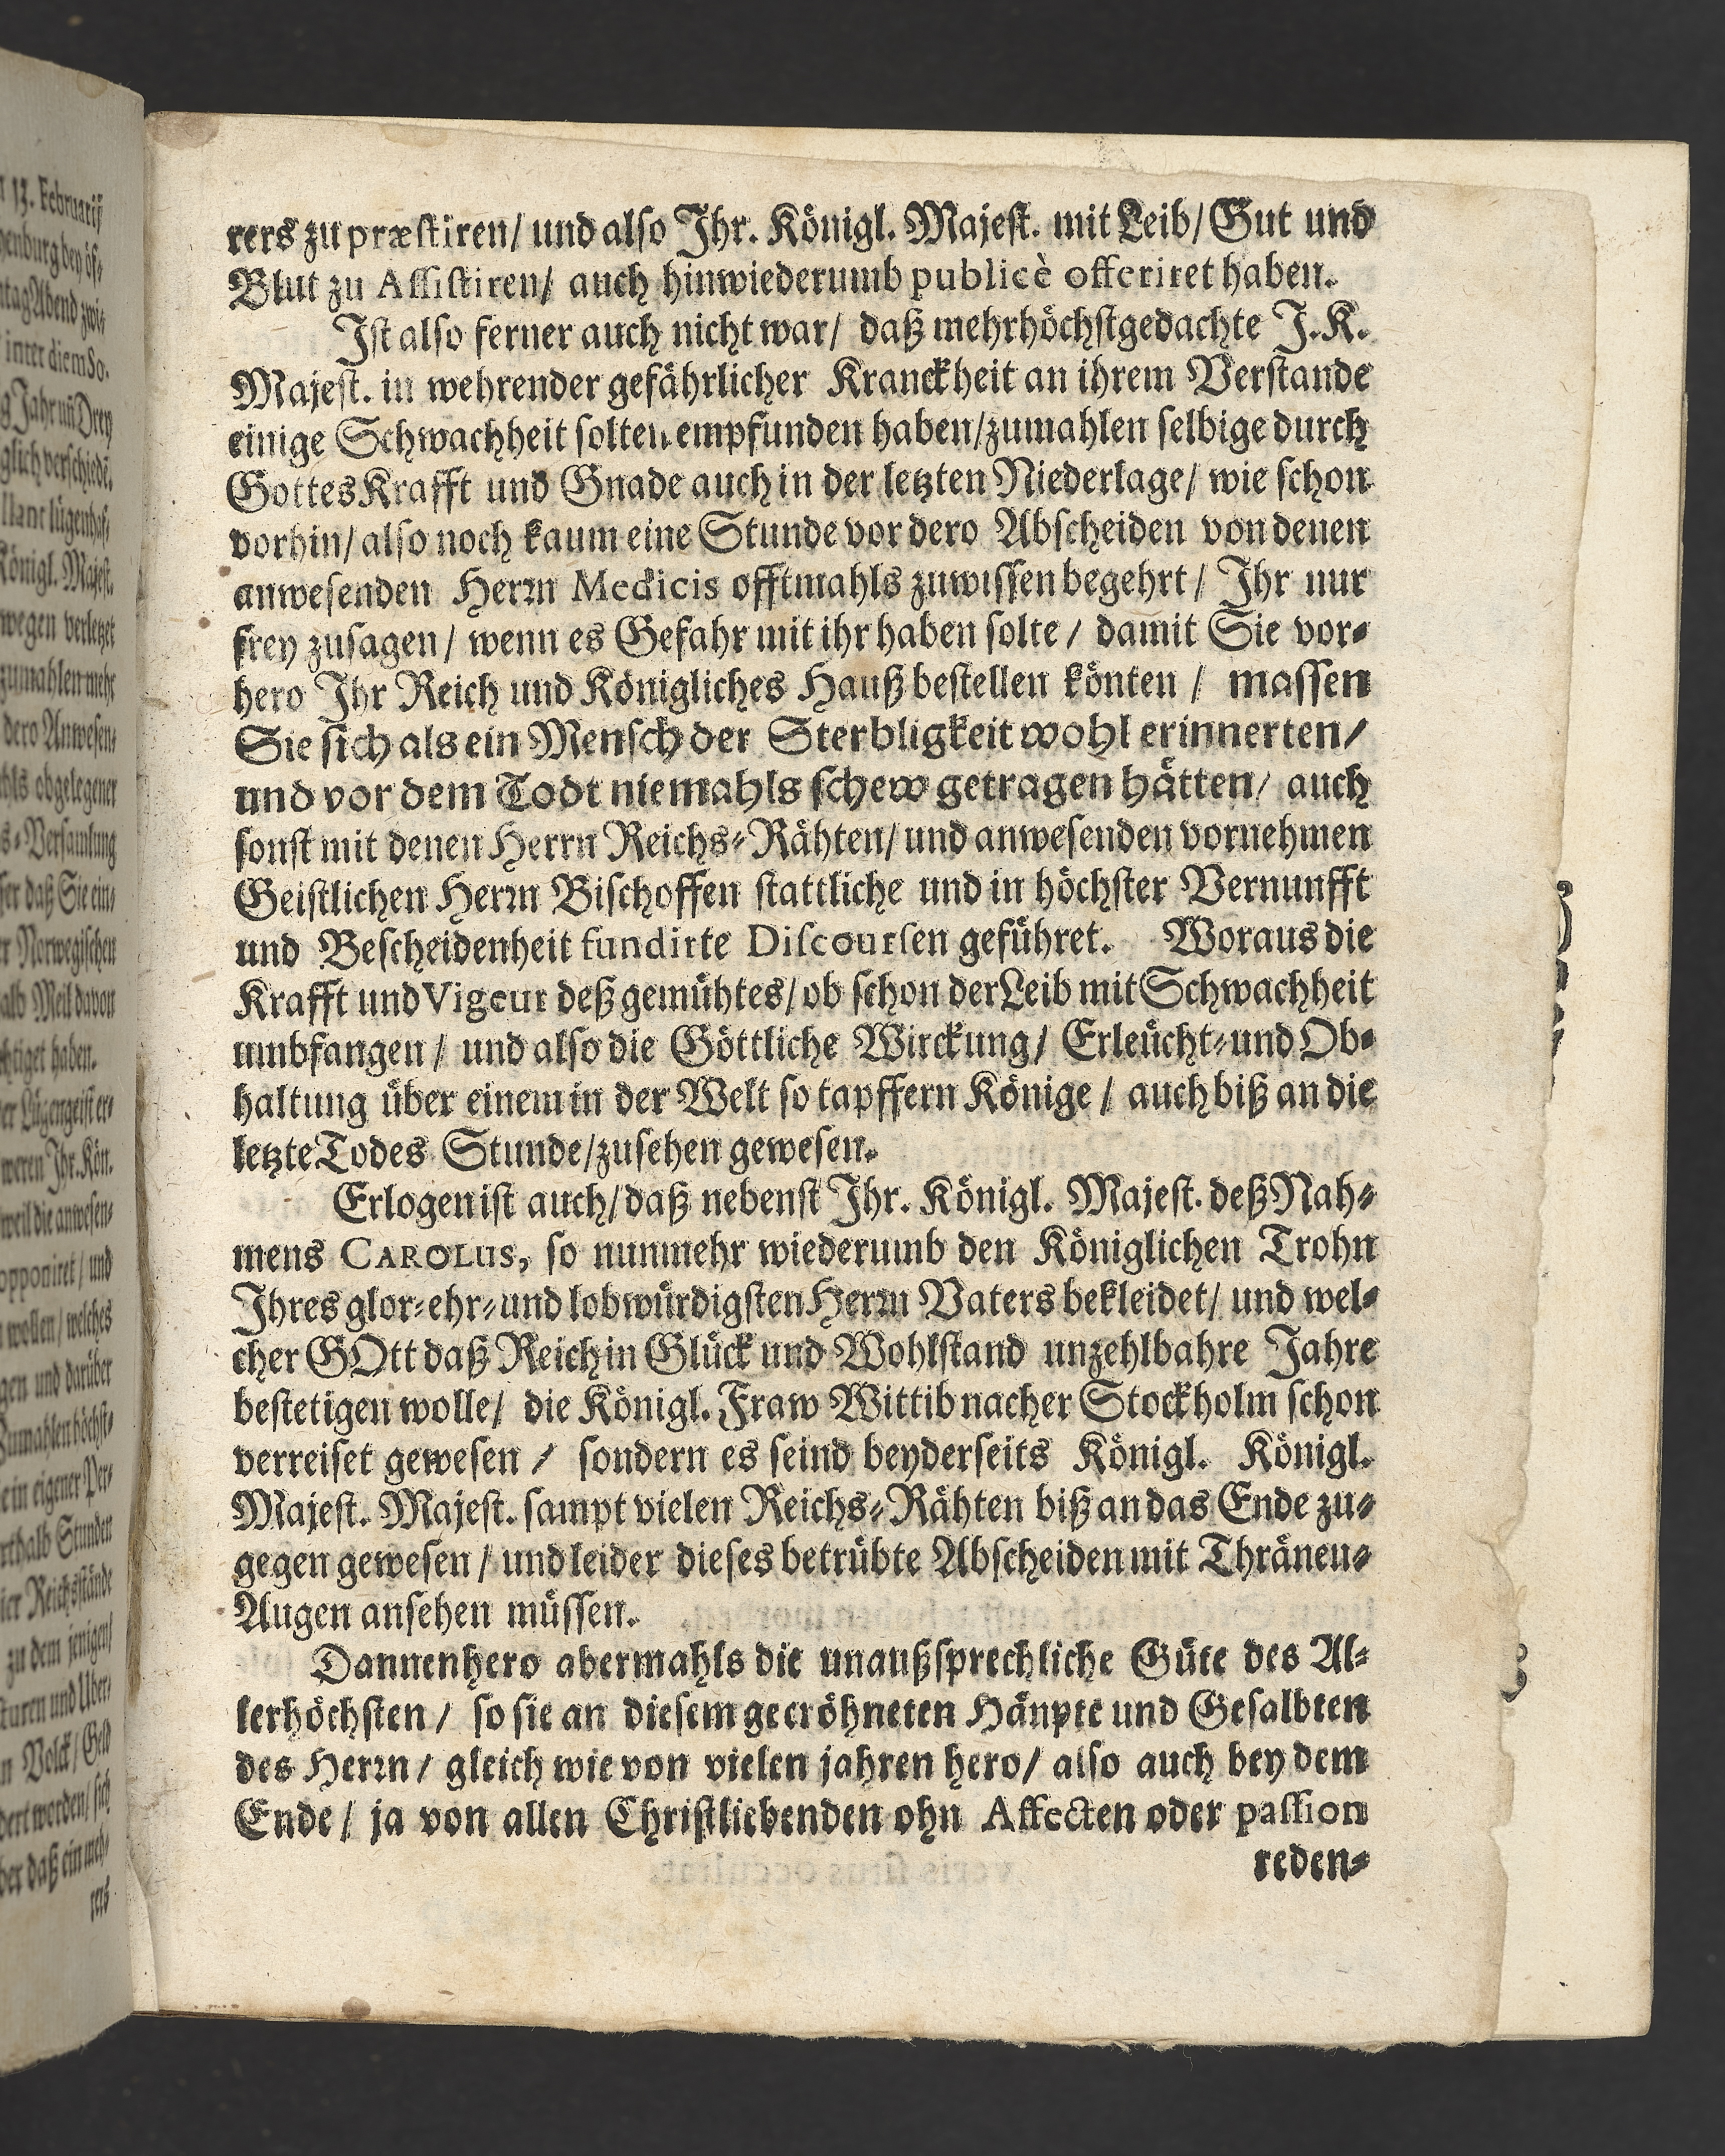 rers zu præstiren/ und also Ihr. Königl. Majest. mit Leib/ Gut und
Blut zu Assistiren/ auch hinwiederumb publicè offeriret haben.
Ist also ferner auch nicht war/ daß mehrhöchstgedachte J. K.
Majest. in wehrender gefährlicher Kranckheit an ihrem Verstande
einige Schwachheit solten empfunden haben/ zumahlen selbige durch
Gottes Krafft und Gnade auch in der letzten Niederlage/ wie schon
vorhin/ also noch kaum eine Stunde vor dero Abscheiden von denen
anwesenden Herrn Medicis offtmahls zuwissen begehrt/ Ihr nur
frey zusagen/ wenn es Gefahr mit ihr haben solte/ damit Sie vor-
hero Ihr Reich und Königliches Hauß bestellen könten/ massen
Sie sich als ein Mensch der Sterbligkeit wohl erinnerten/
und vor dem Todt niemahls schew getragen hätten/ auch
sonst mit denen Herrn Reichs-Rähten/ und anwesenden vornehmen
Geistlichen Herrn Bischoffen stattliche und in höchster Vernunfft
und Bescheidenheit fundirte Discoursen geführet. Woraus die
Krafft und Vigeur deß gemühtes/ ob schon der Leib mit Schwachheit
umbfangen/ und also die Göttliche Wirckung/ Erleücht- und Ob-
haltung über einem in der Welt so tapffern Könige/ auch biß an die
letzte Todes Stunde/ zusehen gewesen.
Erlogen ist auch/ daß nebenst Ihr. Königl. Majest. deß Nah-
mens CAROLUS, so nunmehr wiederumb den Königlichen Trohn
Ihres glor- ehr- und lobwürdigsten Herrn Vaters bekleidet/ und wel-
cher GOtt daß Reich in Glück und Wohlstand unzehlbahre Jahre
bestetigen wolle/ die Königl. Fraw Wittib nacher Stockholm schon
verreiset gewesen/ sondern es seind beyderseits Königl. Königl.
Majest. Majest. sampt vielen Reichs-Rähten biß an das Ende zu-
gegen gewesen/ und leider dieses betrübte Abscheiden mit Thränen-
Augen ansehen müssen.
Dannenhero abermahls die unaußsprechliche Güte des Al-
lerhöchsten/ so sie an diesem gecröhneten Häupte und Gesalbten
des Herrn/ gleich wie von vielen jahren hero/ also auch bey dem
Ende/ ja von allen Christliebenden ohn Affecten oder passion
reden-